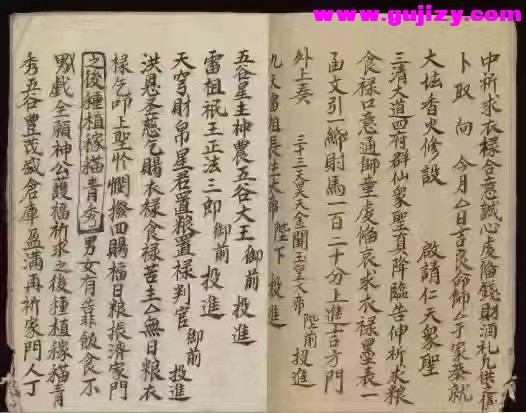 www.gujizy.com
中祈求衣禄合意誠心虔俻錢財酒礼
卜取向 今月厶日吉良命師厶于家
大坛香火修設 啟請仁天衆聖
三清大道四府群仙衆聖真降臨告伸祈求禄
食禄口意通師董虔俻哀求衣禄墨表一
函文引一綁財馬一百二十分上進吉方門
外上奏 三十三天昊天金闕玉皇大帝 陛前 投進
九天雷祖長生大帝 陛下 投進
五谷星主神農五谷大王 御前 投進
雷祖祇王正法三郎 御前 投進
天穹財帛星君置粮置禄判官 御前 投進
洪恩圣慈乞賜衣禄食禄苦主厶無日粮衣
禄乞叩上聖怜憫撥四賜福日粮振済家門
之後種植稼猫青秀 男女有告菲飯食不
戲全賴神公護福祈求之後種植稼猫青
秀五谷豊茂盛倉庫盈滿再祈家門人丁